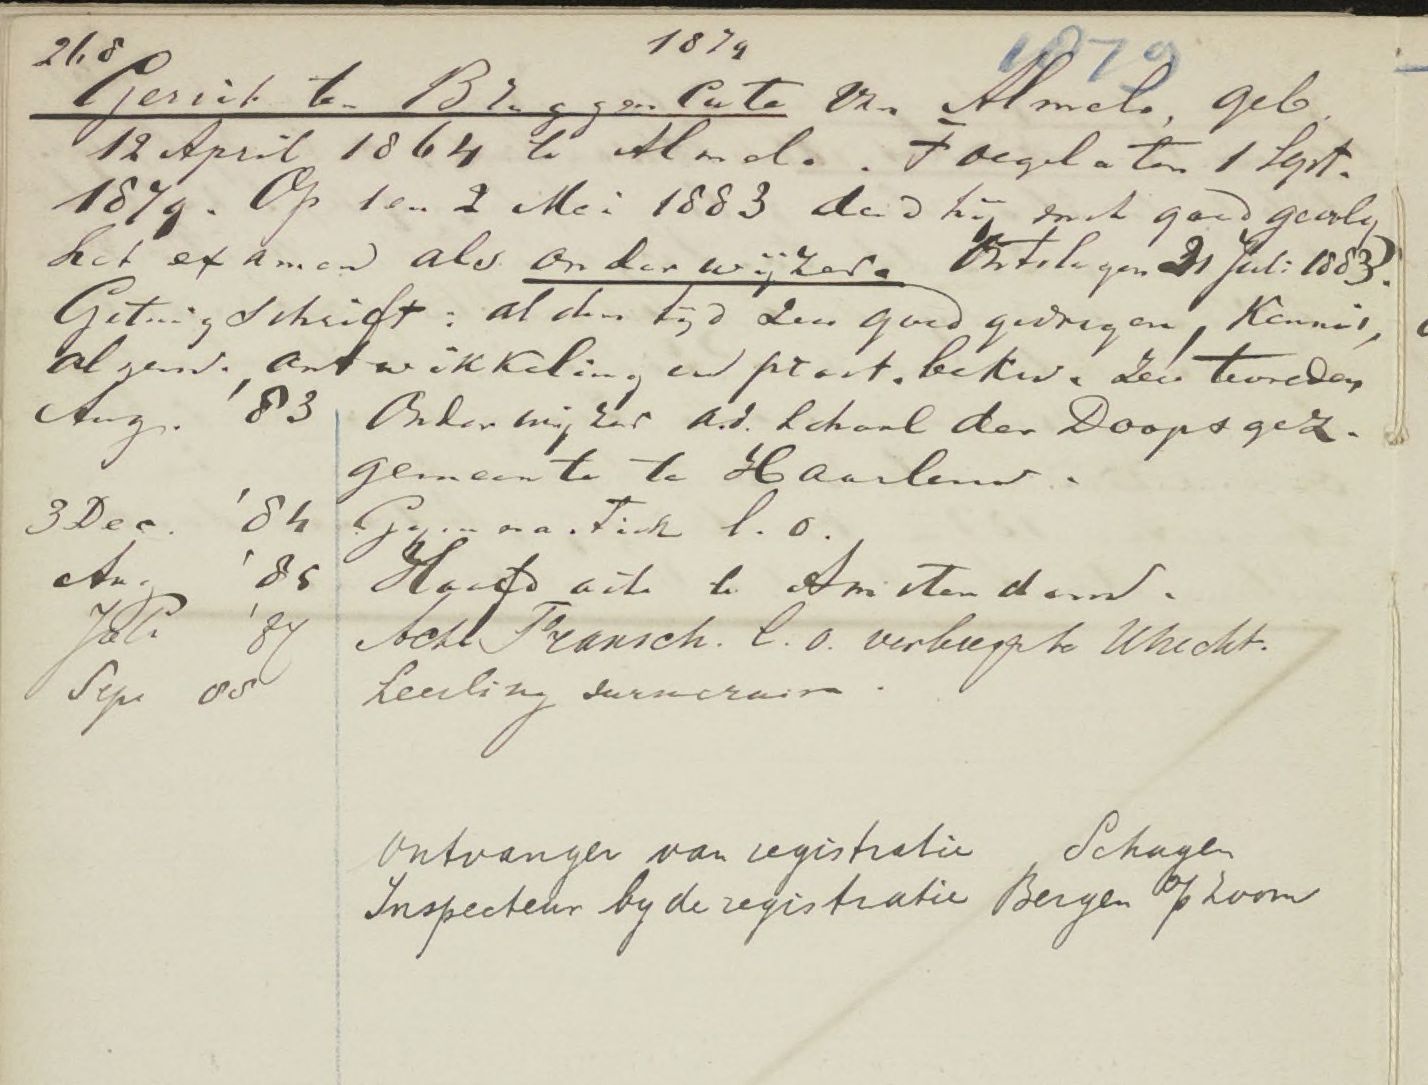 268 1879 1879
Gerrit ten Bruggen Cate van Almelo, geb.
12 April 1864 te Almelo. Toegelaten 1 Sept.
1879. Op den 2 Mei 1883 deed hij met goed gevolg
het examen als onderwijzer. Ontslagen 21 Juli 1883.
Getuigschrift: al den tijd zeer goed gedragen, Kennis,
algem. ontwikkeling en pract. bekw. zeer tevreden
Aug. '83 Onderwijzer a.d. School der Doopsgez.
gemeente te Haarlem.
3 Dec. '84 Gymnastiek l.o.
Aug '86 Hoofdacte te Amsterdam.
Juli '87 Acte Fransch. l.o. verkregen te Utrecht.
Sept 88 Leerling surnumerair.
Ontvanger van registratie Schagen
Inspecteur by de registratie Bergen o/p Zoom